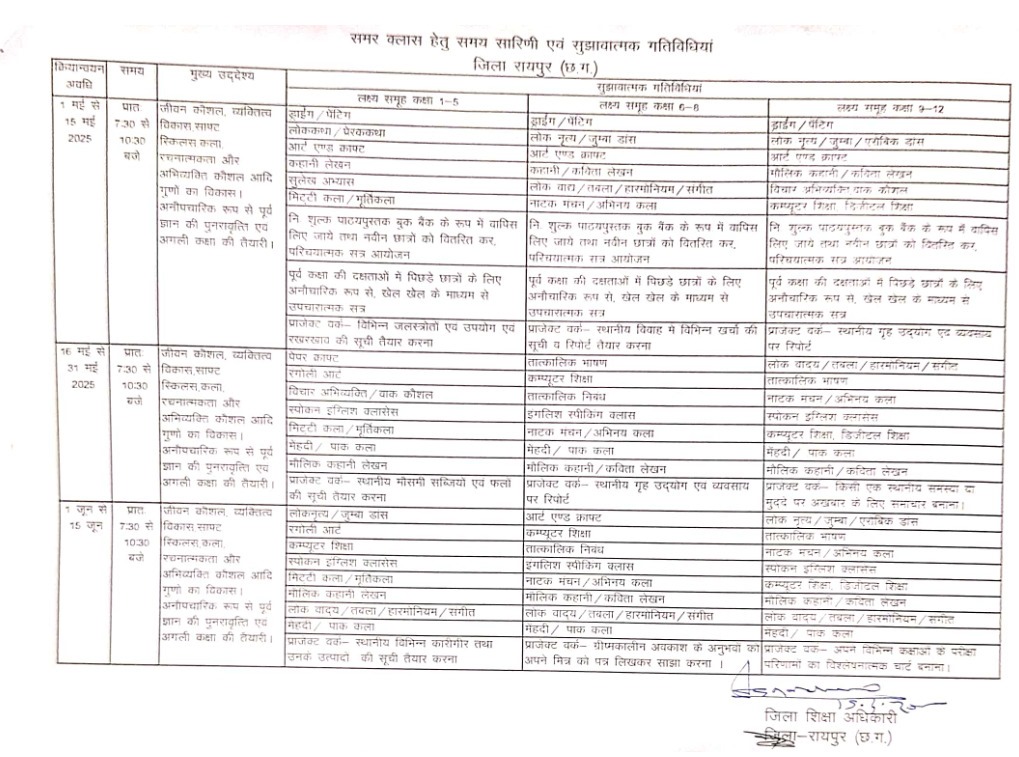 समर क्लास हेतु समय सारिणी एवं सुझावात्मक गतिविधियां
जिला रायपुर (छ.ग.)
क्रियान्वयन अवधि
समय
मुख्य उद्देश्य
सुझावात्मक गतिविधियां
लक्ष्य समूह कक्षा 1-5
लक्ष्य समूह कक्षा 6-8
लक्ष्य समूह कक्षा 9-12
1 मई से
15 मई
2025
प्रातः
7:30 से
10:30
बजे
जीवन कौशल, व्यक्तित्व
विकास,साफ्ट
स्किलस,कला,
रचनात्मकता और
अभिव्यक्ति कौशल आदि
गुणों का विकास।
अनौपचारिक रूप से पूर्व
ज्ञान की पुनरावृत्ति एवं
अगली कक्षा की तैयारी।
ड्राईंग/पेंटिंग
लोककथा/प्रेरककथा
आर्ट एण्ड क्राफ्ट
कहानी लेखन
सुलेख अभ्यास
मिट्टी कला/मूर्तिकला
नि शुल्क पाठयपुस्तक बुक बैंक के रूप में वापिस
लिए जाये तथा नवीन छात्रों को वितरित कर,
परिचयात्मक सत्र आयोजन
पूर्व कक्षा की दक्षताओं में पिछड़े छात्रों के लिए
अनौचारिक रूप से, खेल खेल के माध्यम से
उपचारात्मक सत्र
प्राजेक्ट वर्क– विभिन्न जलस्त्रोतों एवं उपयोग एवं
रखरखाव की सूची तैयार करना
ड्राईंग/पेंटिंग
लोक नृत्य/जुम्बा डांस
आर्ट एण्ड क्राफ्ट
कहानी/कविता लेखन
लोक वाद्य/तबला/हारमोनियम/संगीत
नाटक मंचन/अभिनय कला
नि. शुल्क पाठयपुस्तक बुक बैंक के रूप में वापिस
लिए जाये तथा नवीन छात्रों को वितरित कर,
परिचयात्मक सत्र आयोजन
पूर्व कक्षा की दक्षताओं में पिछड़े छात्रों के लिए
अनौचारिक रूप से, खेल खेल के माध्यम से
उपचारात्मक सत्र
प्राजेक्ट वर्क– स्थानीय विवाह में विभिन्न खर्चो की
सूची व रिपोर्ट तैयार करना
ड्राईंग/पेंटिंग
लोक नृत्य/जुम्बा/एरोबिक डांस
आर्ट एण्ड क्राफ्ट
मौलिक कहानी/कविता लेखन
विचार अभिव्यक्ति वाक कौशल
कम्प्यूटर शिक्षा, डिजीटल शिक्षा
नि. शुल्क पाठयपुस्तक बुक बैंक के रूप में वापिस
लिए जाये तथा नवीन छात्रों को वितरित कर,
परिचयात्मक सत्र आयोजन
पूर्व कक्षा की दक्षताओं में पिछड़े छात्रों के लिए
अनौचारिक रूप से, खेल खेल के माध्यम से
उपचारात्मक सत्र
प्राजेक्ट वर्क– स्थानीय गृह उद्योग एवं व्यवसाय
पर रिपोर्ट
16 मई से
31 मई
2025
प्रातः
7:30 से
10:30
बजे
जीवन कौशल, व्यक्तित्व
विकास,साफ्ट
स्किलस,कला,
रचनात्मकता और
अभिव्यक्ति कौशल आदि
गुणों का विकास।
अनौपचारिक रूप से पूर्व
ज्ञान की पुनरावृत्ति एवं
अगली कक्षा की तैयारी।
पेपर क्राफ्ट
रंगोली आर्ट
विचार अभिव्यक्ति/वाक कौशल
स्पोकन इंग्लिश क्लासेस
मिटटी कला/मूर्तिकला
मेंहदी/ पाक कला
मौलिक कहानी लेखन
प्राजेक्ट वर्क– स्थानीय मौसमी सब्जियों एवं फलों
की सूची तैयार करना
तात्कालिक भाषण
कम्प्यूटर शिक्षा
तात्कालिक निबंध
इंगलिश स्पीकिंग क्लास
नाटक मंचन/अभिनय कला
मेंहदी/ पाक कला
मौलिक कहानी/कविता लेखन
प्राजेक्ट वर्क– स्थानीय गृह उद्योग एवं व्यवसाय
पर रिपोर्ट
लोक वादय/तबला/हारमोनियम/संगीत
तात्कालिक भाषण
नाटक मंचन/अभिनय कला
स्पोकन इंग्लिश क्लासेस
कम्प्यूटर शिक्षा, डिजीटल शिक्षा
मेंहदी/ पाक कला
मौलिक कहानी/कविता लेखन
प्राजेक्ट वर्क– किसी एक स्थानीय समस्या या
मुददे पर अखबार के लिए समाचार बनाना।
1 जून से
15 जून
प्रातः
7:30 से
10:30
बजे
जीवन कौशल, व्यक्तित्व
विकास,साफ्ट
स्किलस,कला,
रचनात्मकता और
अभिव्यक्ति कौशल आदि
गुणों का विकास।
अनौपचारिक रूप से पूर्व
ज्ञान की पुनरावृत्ति एवं
अगली कक्षा की तैयारी।
लोकनृत्य/जुम्बा डांस
रंगोली आर्ट
कम्प्यूटर शिक्षा
स्पोकन इंग्लिश क्लासेस
मिटटी कला/मूर्तिकला
मौलिक कहानी लेखन
लोक वादय/तबला/हारमोनियम/संगीत
मेहंदी/ पाक कला
प्राजेक्ट वर्क– स्थानीय विभिन्न कारीगीर तथा
उनके उत्पादों की सूची तैयार करना
आर्ट एण्ड क्राफ्ट
कम्प्यूटर शिक्षा
तात्कालिक निबंध
इंगलिश स्पीकिंग क्लास
नाटक मंचन/अभिनय कला
मौलिक कहानी/कविता लेखन
लोक वादय/तबला/हारमोनियम/संगीत
मेंहदी/ पाक कला
प्राजेक्ट वर्क– ग्रीष्मकालीन अवकाश के अनुभवों को
अपने मित्र को पत्र लिखकर साझा करना ।
लोक नृत्य/जुम्बा/एरोबिक डांस
तात्कालिक भाषण
नाटक मंचन/अभिनय कला
स्पोकन इंग्लिश क्लासेस
कम्प्यूटर शिक्षा, डिजीटल शिक्षा
मौलिक कहानी/कविता लेखन
लोक वादय/तबला/हारमोनियम/संगीत
मेंहदी/ पाक कला
प्राजेक्ट वर्क– अपने विभिन्न कक्षाओं के परीक्षा
परिणामों का विश्लेषनात्मक चार्ट बनाना।
जिला शिक्षा अधिकारी
जिला–रायपुर (छ.ग.)